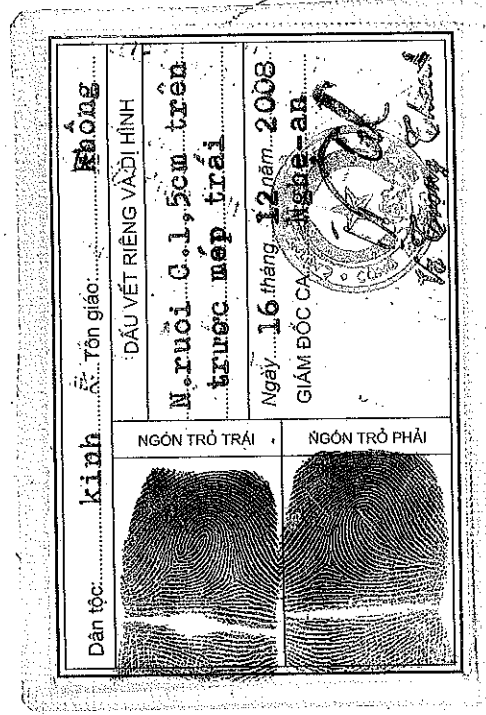 Dân tộc: kinh Tôn giáo: Không
DẤU VẾT RIÊNG VÀ DỊ HÌNH
N.ruồi C.1,5cm trên
trước mép trái
Ngày 16 tháng 12 năm 2008
GIÁM ĐỐC CA Nghệ-an
NGÓN TRỎ TRÁI
NGÓN TRỎ PHẢI